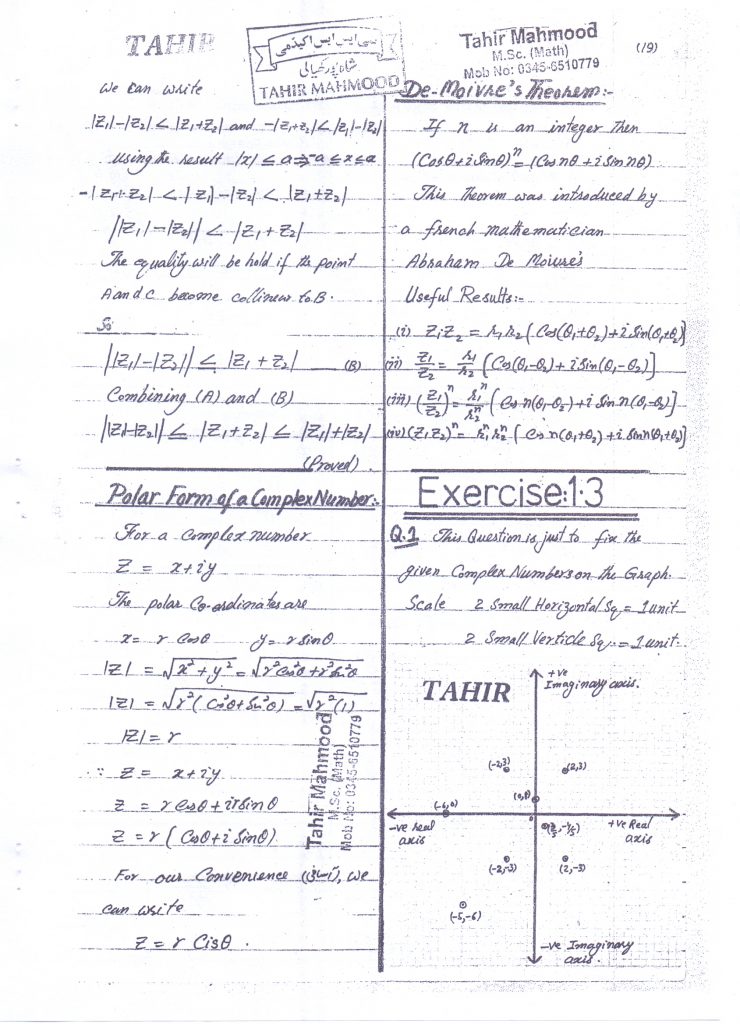 TAHIR
سی ایس ایس اکیڈمی
شاہ پور کھیالی
TAHIR MAHMOOD
Tahir Mahmood
M.Sc. (Math)
Mob No: 0345-6510779
(19)
We can write
|Z₁|-|Z₂| < |Z₁+Z₂| and -|Z₁+Z₂| < |Z₁|-|Z₂|
Using the result |x| ≤ a ⇒ -a ≤ x ≤ a
-|Z₁+Z₂| < |Z₁|-|Z₂| < |Z₁+Z₂|
||Z₁|-|Z₂|| < |Z₁+Z₂|
The equality will be hold if the point
A and C become collinear to B.
So
||Z₁|-|Z₂|| ≤ |Z₁+Z₂| (B)
Combining (A) and (B)
||Z₁|-|Z₂|| ≤ |Z₁+Z₂| ≤ |Z₁|+|Z₂|
(Proved).
Polar Form of a Complex Number:-
For a complex number
Z = x+iy
The polar Co-ordinates are
x= r Cosθ y= r Sinθ
|Z| = √x²+y² = √r²Cos²θ+r²Sin²θ
|Z| = √r²(Cos²θ+Sin²θ) = √r²(1)
|Z| = r
∵ Z = x+iy
Z = r Cosθ + ir Sinθ
Z = r (Cosθ+i Sinθ)
For our Convenience we
can write
Z = r Cisθ .
Tahir Mahmood
M.Sc. (Math)
Mob No: 0345-6510779
De-Moivre's Theorem:-
If n is an integer Then
(Cosθ+i Sinθ)ⁿ = (Cos nθ + i Sin nθ)
This Theorem was introduced by
a french mathematician
Abraham De Moivre's
Useful Results:-
(i) Z₁Z₂ = r₁r₂ [Cos(θ₁+θ₂)+i Sin(θ₁+θ₂)]
(ii) Z₁/Z₂ = r₁/r₂ [Cos(θ₁-θ₂)+ i Sin(θ₁-θ₂)]
(iii) (Z₁/Z₂)ⁿ = r₁ⁿ/r₂ⁿ [Cos n(θ₁-θ₂)+i Sin n(θ₁-θ₂)]
(iv) (Z₁Z₂)ⁿ = r₁ⁿr₂ⁿ [Cos n(θ₁+θ₂)+i Sin n(θ₁+θ₂)]
Exercise:1.3
Q.1 This Question is just to fix the
given Complex Numbers on the Graph.
Scale 2 Small Horizontal Sq = 1 unit
2 Small Verticle Sq = 1 unit.
TAHIR
+ve
Imaginary axis.
(-2,3)
(2,3)
(-6,0)
-ve Real
axis
+ve Real
axis
(-2,-3)
(2,-3)
(-5,-6)
-ve Imaginary
axis.